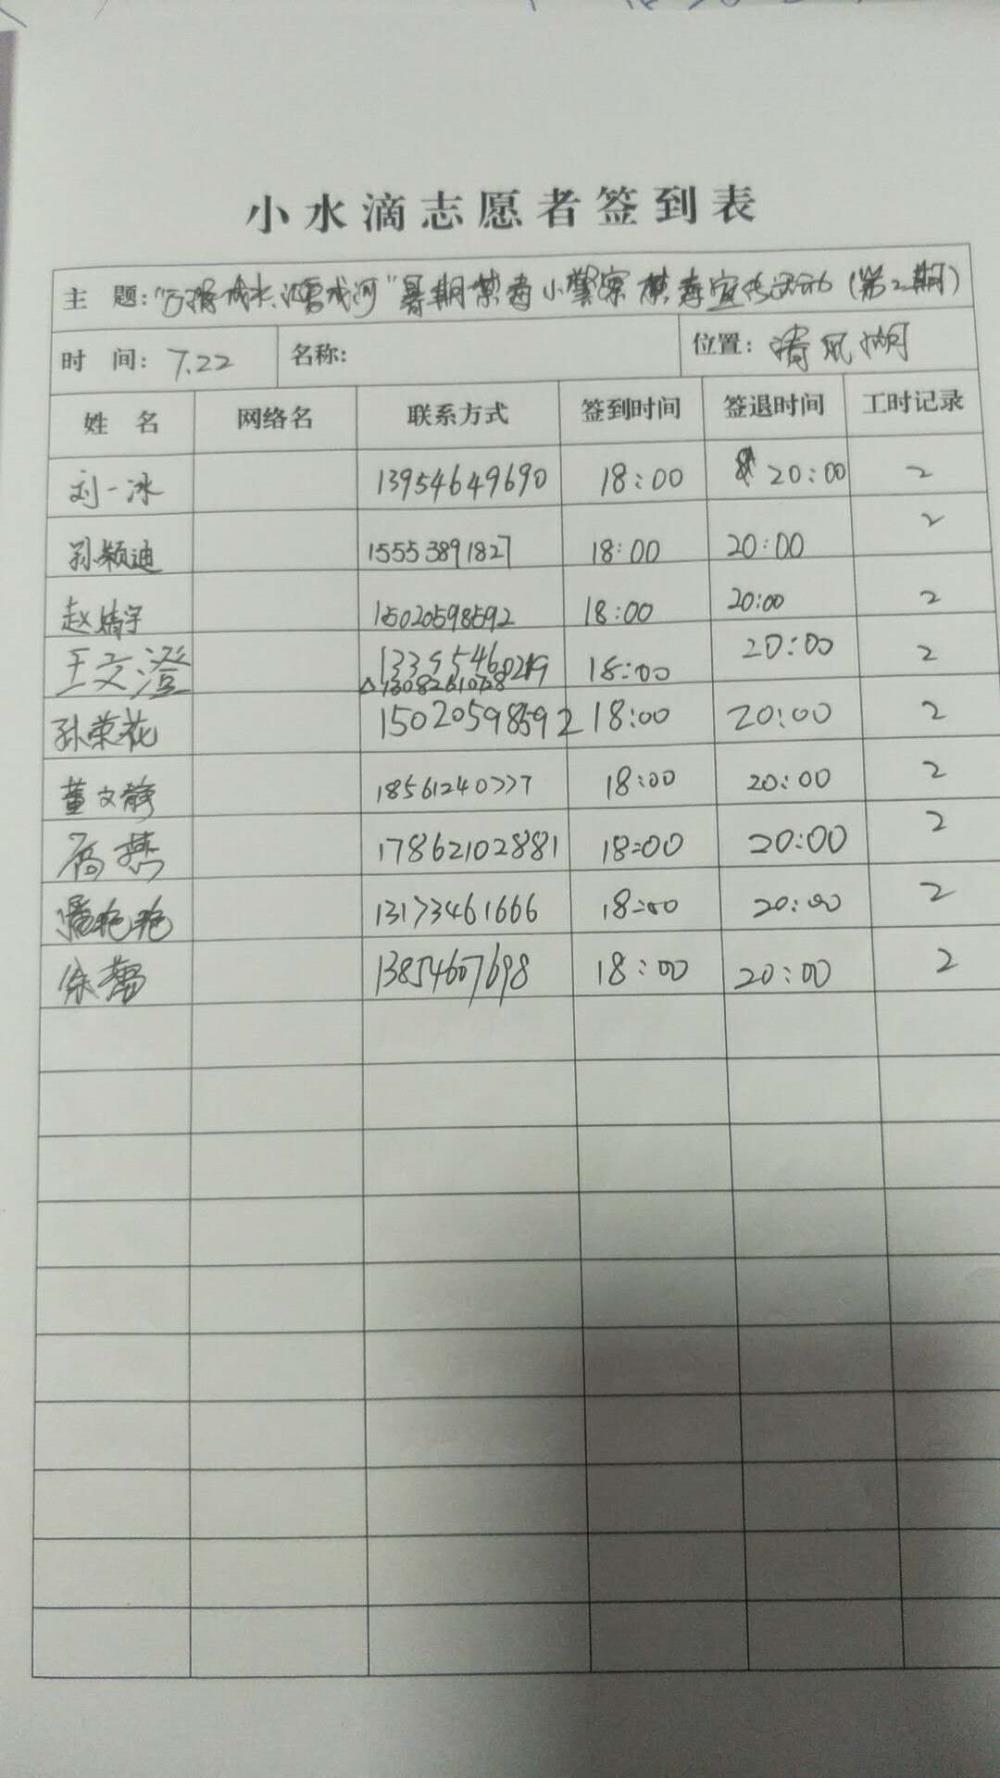 小水滴志愿者签到表
主 题:"万滴成水、汇雪成河"暑期禁毒小警察禁毒宣传活动(第2期)
时 间: 7.22 名称: 位置: 清风湖
姓 名 网络名 联系方式 签到时间 签退时间 工时记录
刘一冰 13954649690 18:00 20:00 2
孙颖迪 15553891827 18:00 20:00 2
赵婧宇 15020598592 18:00 20:00 2
王文澄 18:00 20:00 2
孙荣花 15020598592 18:00 20:00 2
董文静 18561240777 18:00 20:00 2
17862102881 18:00 20:00 2
潘艳艳 13173461666 18:00 20:00 2
徐蕾 13854607698 18:00 20:00 2